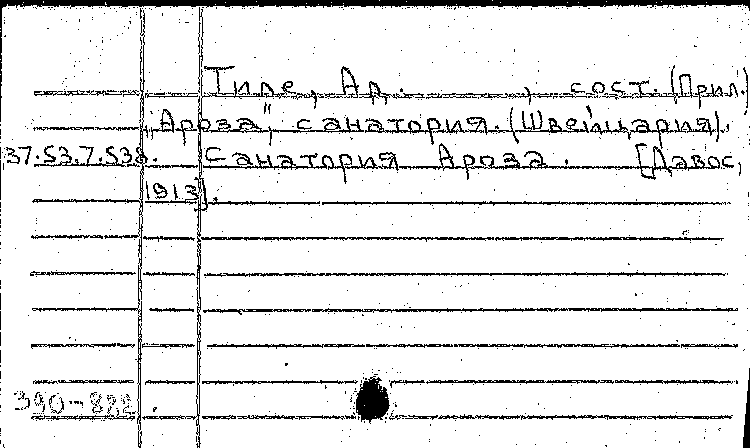 Тиле, Ад. , сост. (Прил.)
„Ароза", санатория. (Швейцария).
37.53.7.538. Санатория Ароза. [Давос,
1913].
390-882